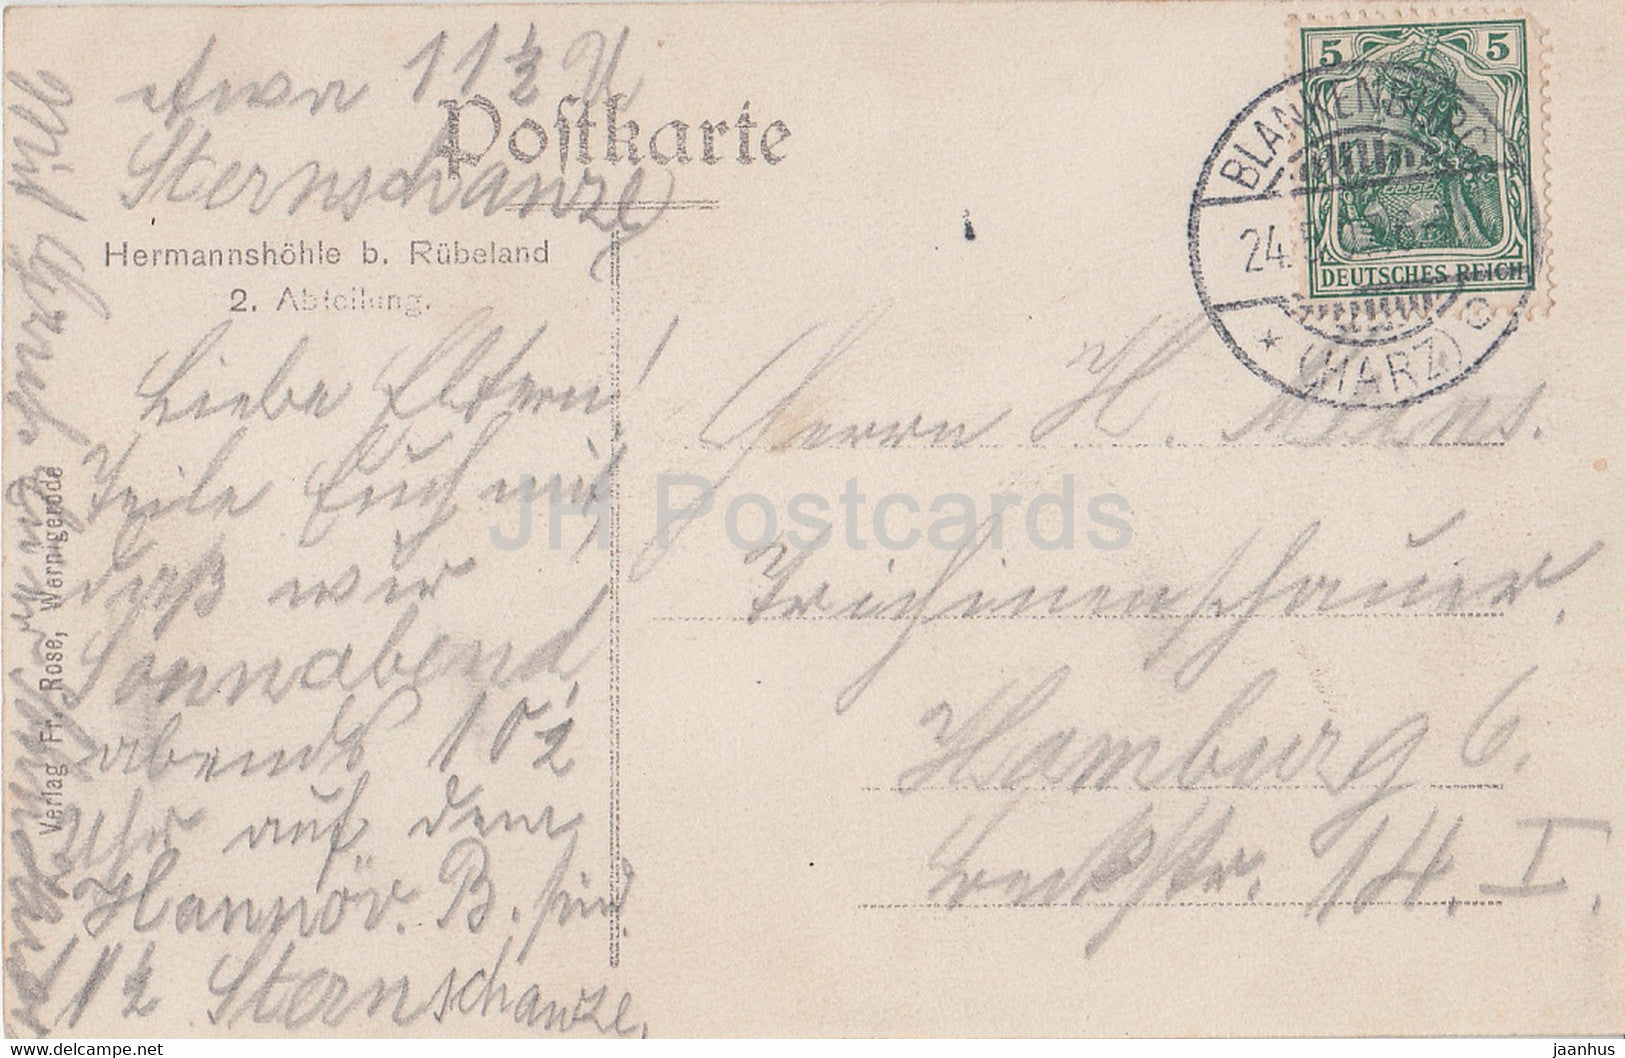 etwa 11½ U
Sternschanze
Postkarte
Hermannshöhle b. Rübeland
2. Abteilung.
Liebe Eltern!
Teile Euch mit
daß wir
Sonnabend
abends 10½
Uhr auf dem
Hannöv. B. sind
11½ Sternschanze.
Mit Gruß
Verlag Fr. Rose, Wernigerode
5 5
DEUTSCHES REICH
BLANKENBURG
24.5.
* (HARZ) c
Herrn H. Möans.
Trichinenschauer.
Hamburg 6.
Beckstr. 14. I.
JH Postcards
delcampe.net
jaanhus